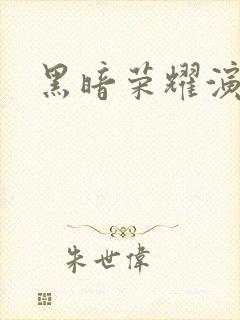 黑暗荣耀演
朱世偉